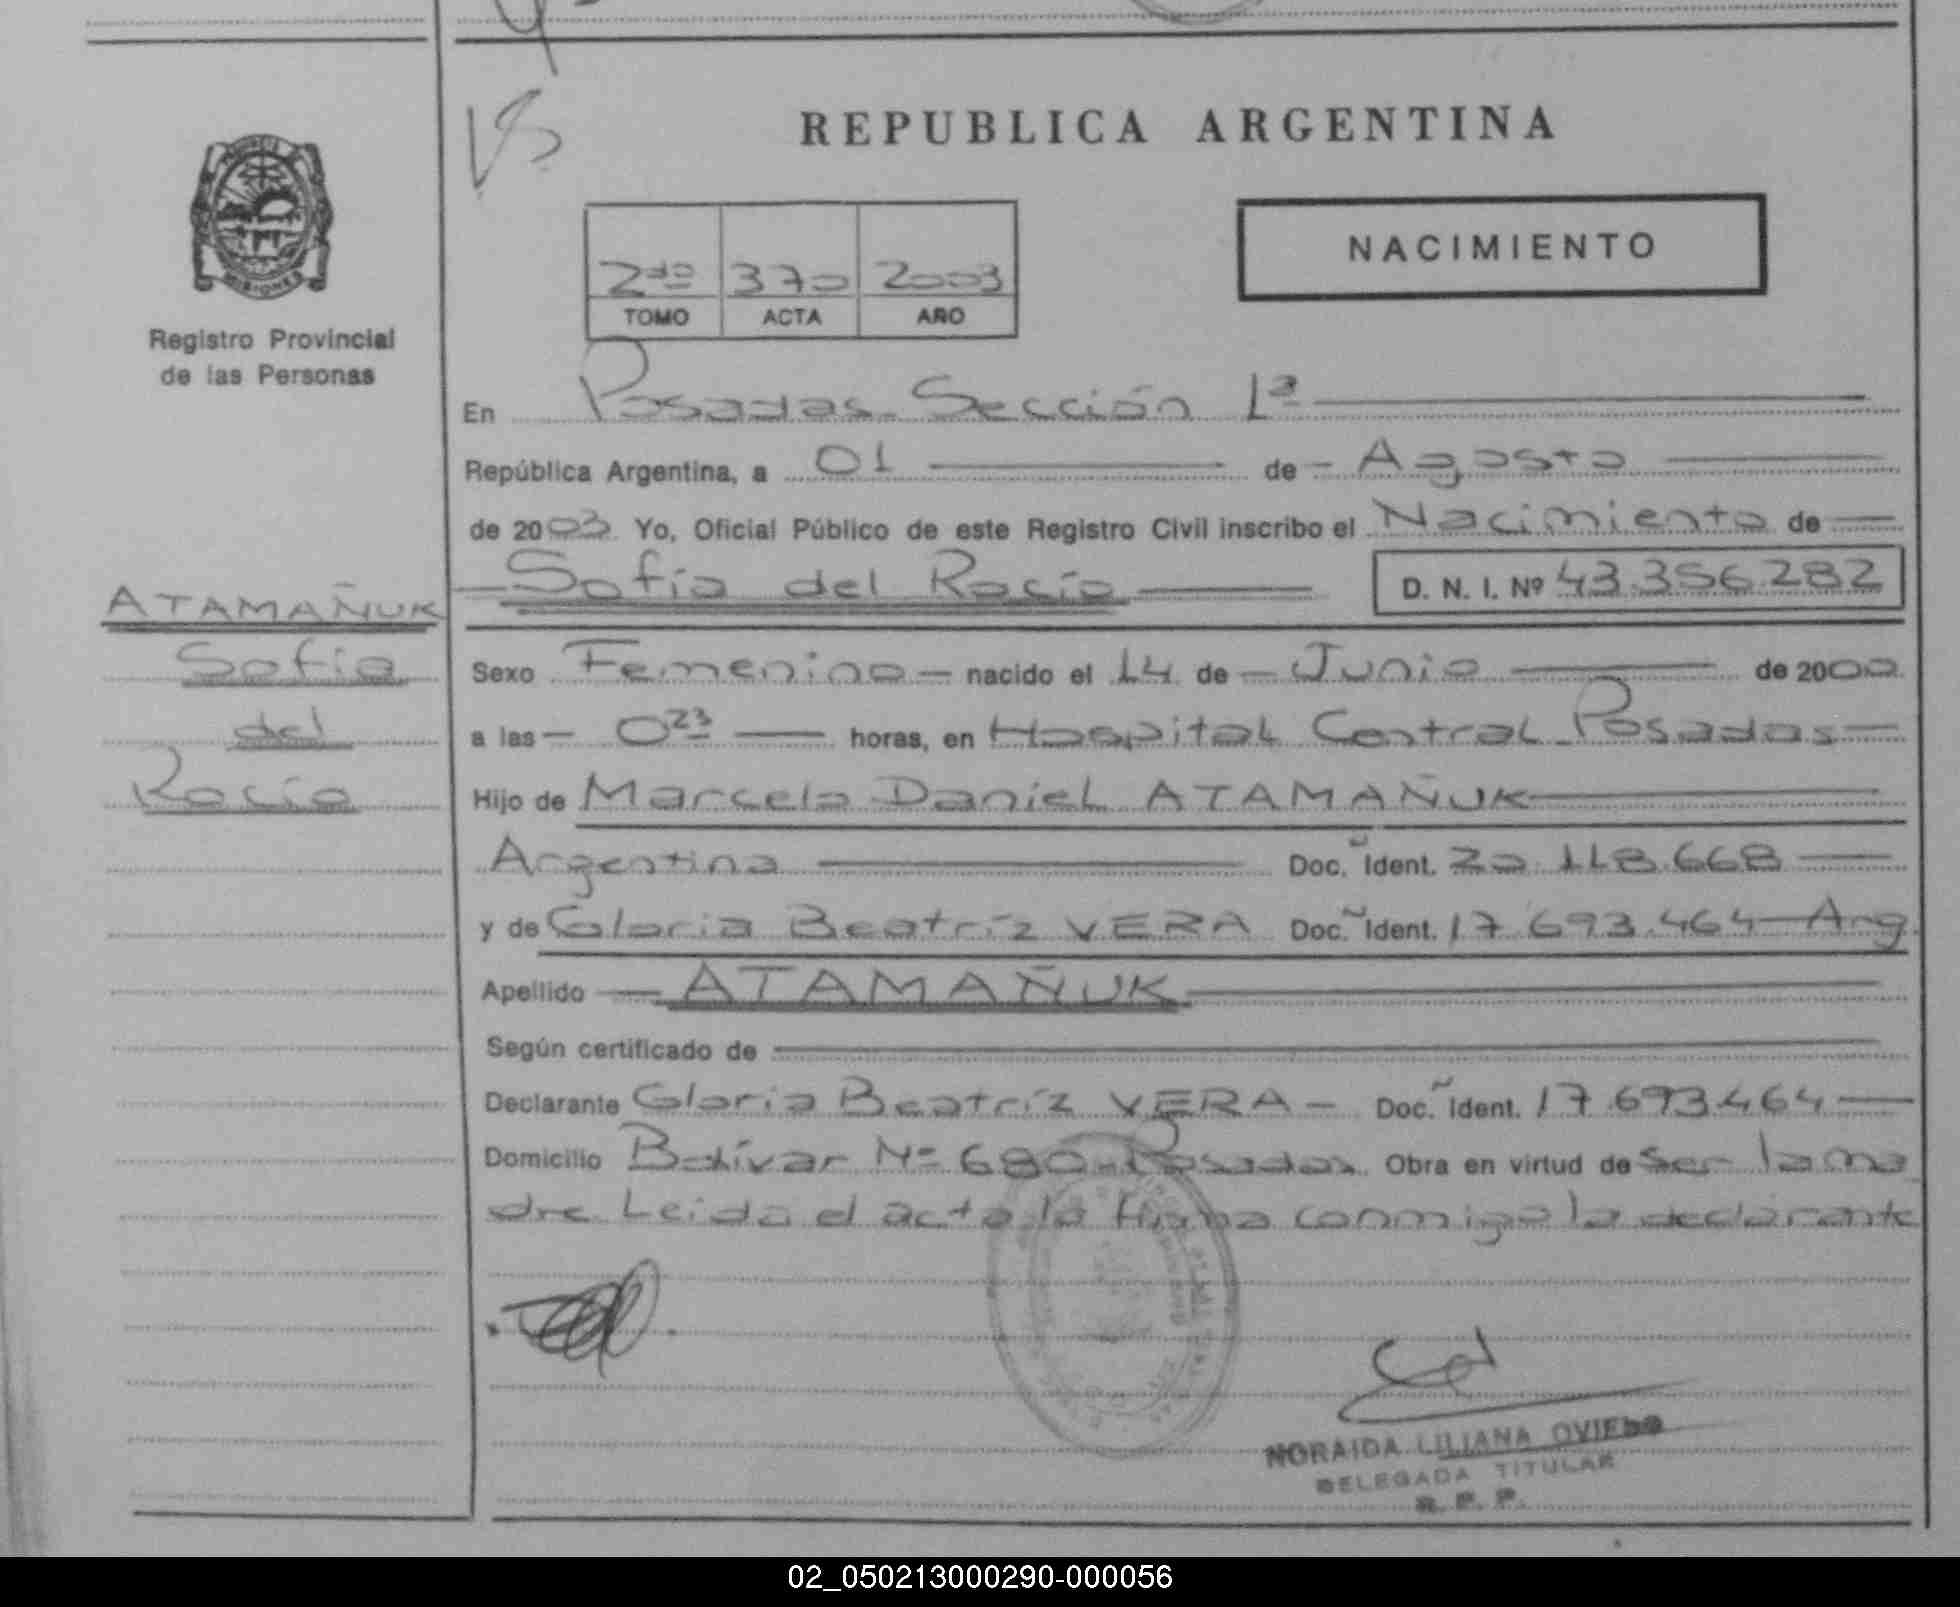 REPUBLICA ARGENTINA
PROVINCIA DE MISIONES
Registro Provincial
de las Personas
NACIMIENTO
2do 370 2003
TOMO ACTA AÑO
En Posadas Sección 1ª
República Argentina, a 01 de Agosto
de 2003. Yo, Oficial Público de este Registro Civil inscribo el Nacimiento de
Sofía del Rocío D. N. I. Nº 43.356.282
ATAMAÑUK
Sofía
del
Rocío
Sexo Femenino nacido el 14 de Junio de 2000
a las 0 23 horas, en Hospital Central Posadas
Hijo de Marcelo Daniel ATAMAÑUK
Argentina Doc. Ident. 20.118.668
y de Gloria Beatríz VERA Doc. Ident. 17.693.464 Arg.
Apellido ATAMAÑUK
Según certificado de
Declarante Gloria Beatríz VERA Doc. Ident. 17.693.464
Domicilio Bolívar Nº 680 Posadas Obra en virtud de ser la ma
dre Leida el acta la firma conmigo la declarante
NORAIDA LILIANA OVIEDO
DELEGADA TITULAR
R. P. P.
02_050213000290-000056